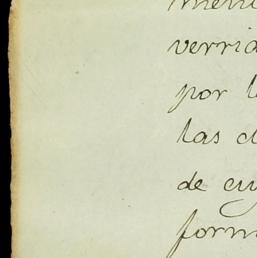 verri
por l
las d
de cu
form